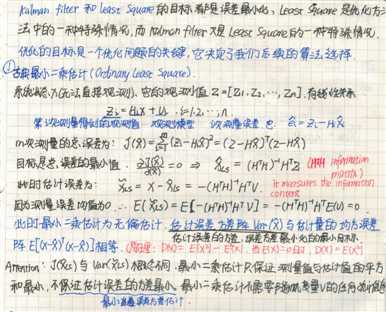 Kalman filter 和 Least Square 的目标都是误差最小化, Least Square 是优化方
法中的一种特殊情况, 而 Kalman filter 又是 Least Square 的一种特殊情况.
优化的目标是一个优化问题的关键, 它决定了我们后续的算法选择.
①最小二乘估计 (Ordinary Least Square).
系统状态 X(无法直接观测), 它的观测值 Z = [Z₁, Z₂, … Zn], 有线性关系
Zᵢ = HᵢX + Vᵢ, i=1,2,…n
第i次测量得到的观测值 观测模型 i次测量误差
m次测量的总误差为: J(X̂) = (Zᵢ-HᵢX̂)² = (Z-HX̂)ᵀ(Z-HX̂)
目标是总误差的最小值. ∂J(X̂)/∂X̂ = 0 ⇒ X̂LS = (HᵀH)⁻¹HᵀZ (HᵀH information matrix)
此时估计误差为: X̃LS = X - X̂LS = -(HᵀH)⁻¹HᵀV. it measures the information content
因为测量误差均值为0, ∴ E(X̃LS) = E[-(HᵀH)⁻¹HᵀV] = -(HᵀH)⁻¹HᵀE(V) = 0
此时最小二乘估计为无偏估计. 估计误差方差阵 Var(X̃) 与估计量的均方误差
阵 E[(X-X̂)²] 相等. D(X) = E(X²) - E(X)², D(X) = E(X²)
Attention: J(X̂LS) 与 Var(X̃LS) 不同, 最小二乘估计只保证测量值与估计值的平方
和最小, 不保证估计误差的方差最小. 最小二乘估计不需要
最小方差估计.